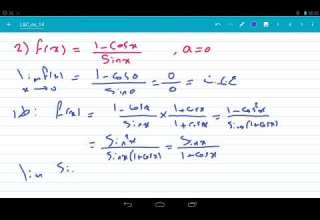 LEC_no_14
2) f(x) = (1-cosx)/(sinx) , a=0
lim f(x) x→0 = (1-cos0)/(sin0) = 0/0 =
f(x) = (1-cosx)/(sinx) × (1+cosx)/(1+cosx) = (1-cos²x)/(sinx(1+cosx))
= (sin²x)/(sinx(1+cosx)) = (sinx)/(1+cosx)
lim Si